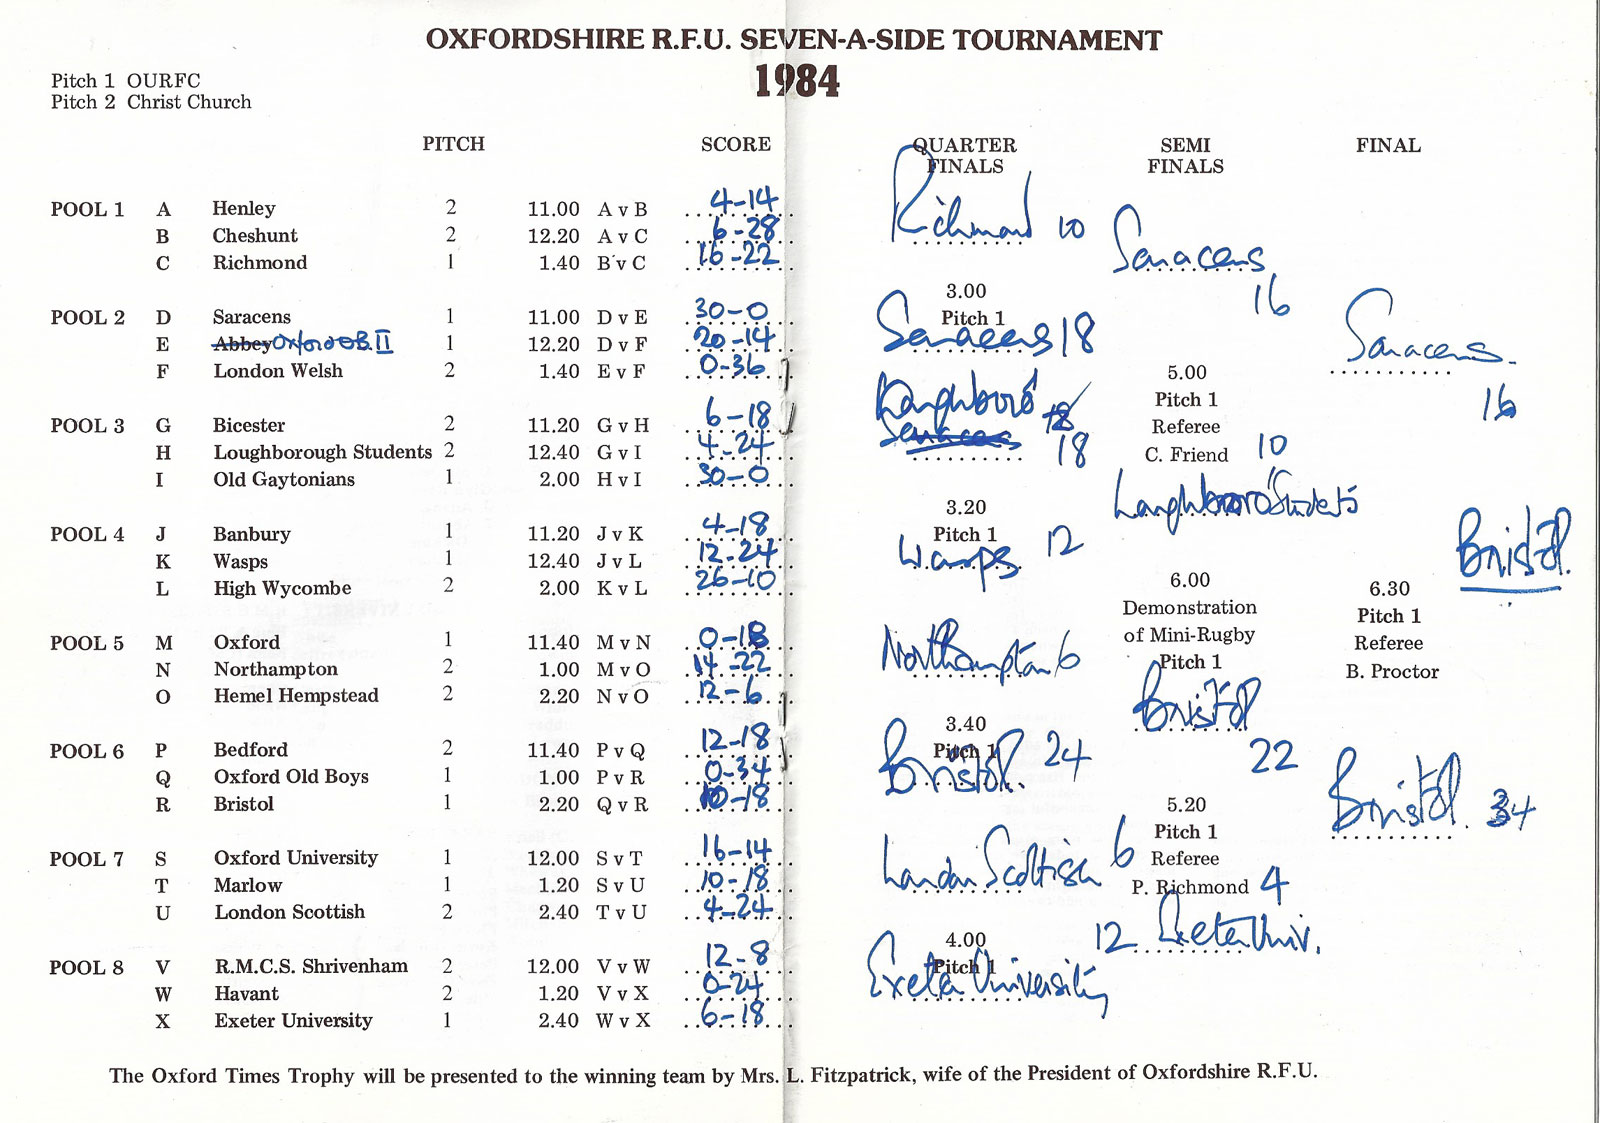 OXFORDSHIRE R.F.U. SEVEN-A-SIDE TOURNAMENT
1984
Pitch 1 OURFC
Pitch 2 Christ Church
PITCH SCORE
POOL 1 A Henley 2 11.00 A v B 4-14
B Cheshunt 2 12.20 A v C 6-28
C Richmond 1 1.40 B v C 16-22
POOL 2 D Saracens 1 11.00 D v E 30-0
E Abbey Oxford O.B. II 1 12.20 D v F 20-14
F London Welsh 2 1.40 E v F 0-36
POOL 3 G Bicester 2 11.20 G v H 6-18
H Loughborough Students 2 12.40 G v I 4-24
I Old Gaytonians 1 2.00 H v I 30-0
POOL 4 J Banbury 1 11.20 J v K 4-18
K Wasps 1 12.40 J v L 12-24
L High Wycombe 2 2.00 K v L 26-10
POOL 5 M Oxford 1 11.40 M v N 0-18
N Northampton 2 1.00 M v O 14-22
O Hemel Hempstead 2 2.20 N v O 12-6
POOL 6 P Bedford 2 11.40 P v Q 12-18
Q Oxford Old Boys 1 1.00 P v R 0-34
R Bristol 1 2.20 Q v R 10-18
POOL 7 S Oxford University 1 12.00 S v T 16-14
T Marlow 1 1.20 S v U 10-18
U London Scottish 2 2.40 T v U 4-24
POOL 8 V R.M.C.S. Shrivenham 2 12.00 V v W 12-8
W Havant 2 1.20 V v X 0-24
X Exeter University 1 2.40 W v X 6-18
QUARTER
FINALS
Richmond 10
3.00
Pitch 1
Saracens 18
Loughboro'
Saracens 18
3.20
Pitch 1
Wasps 12
Northampton 6
3.40
Pitch 1
Bristol 24
London Scottish 6
4.00
Pitch 1
Exeter University 12
SEMI
FINALS
Saracens
16
5.00
Pitch 1
Referee
C. Friend 10
Loughboro' Students
6.00
Demonstration
of Mini-Rugby
Pitch 1
Bristol
22
5.20
Pitch 1
Referee
P. Richmond 4
Exeter Univ.
FINAL
Saracens
16
Bristol
6.30
Pitch 1
Referee
B. Proctor
Bristol 34
The Oxford Times Trophy will be presented to the winning team by Mrs. L. Fitzpatrick, wife of the President of Oxfordshire R.F.U.